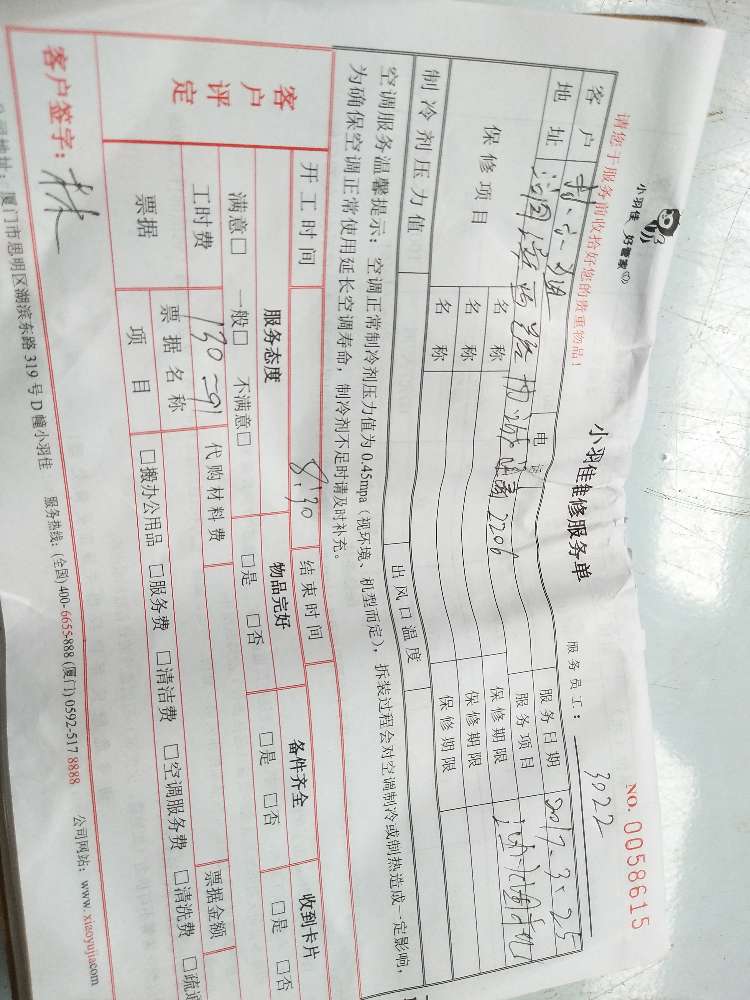 小羽佳 好管家
小羽佳维修服务单
NO. 0058615
请您于服务前收拾好您的贵重物品!
服务员工: 3022
客户
电
服务日期 2017.3.25
地址 2206
服务项目
保修项目
名称 保修期限
名称 保修期限
名称 保修期限
制冷剂压力值 出风口温度
空调服务温馨提示:空调正常制冷剂压力值为0.45mpa(视环境、机型而定),拆装过程会对空调制冷或制热造成一定影响,
为确保空调正常使用延长空调寿命,制冷剂不足时请及时补充。
开工时间 8:30 结束时间
客户评定
服务态度 物品完好 备件齐全 收到卡片
满意□ 一般□ 不满意□ □是 □否 □是 □否 □是 □否
工时费 代购材料费
票据 票据名称 票据金额
项目 □搬办公用品 □服务费 □清洁费 □空调服务费 □清洗费 □疏通
客户签字: 林
公司地址:厦门市思明区湖滨东路319号D幢小羽佳 服务热线:(全国)400-6655-888 (厦门)0592-517 8888 公司网站:www.xiaoyujia.com